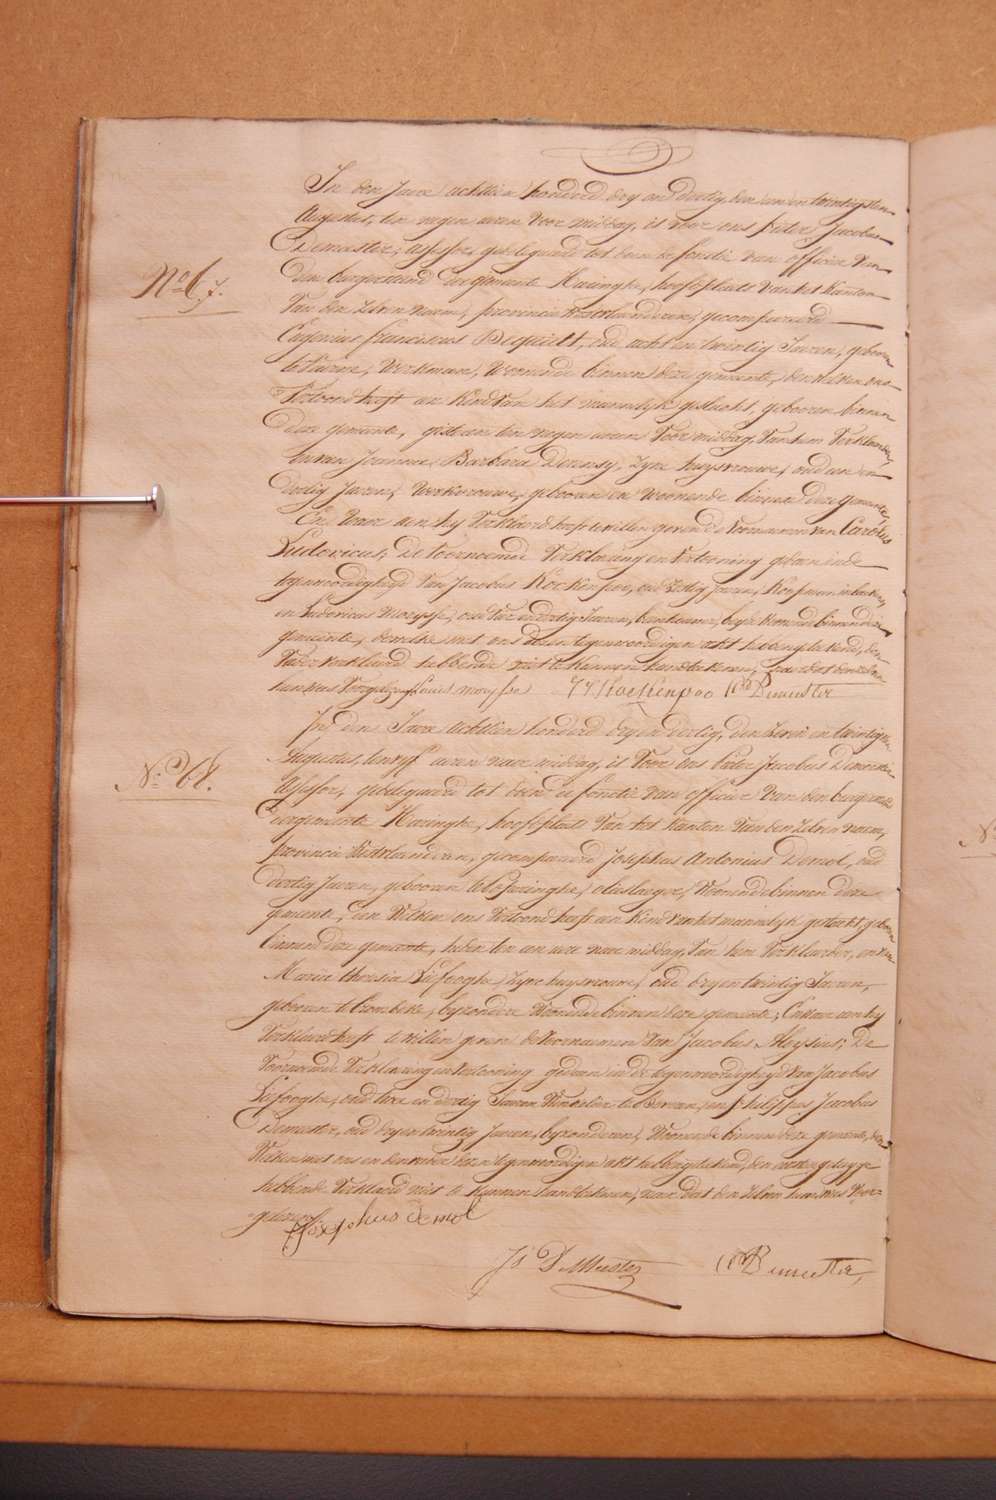 In den Jaere achtien honderd dry en dertig, den seven en twintigsten
Augustus, ten negen uren voor middag, is voor ons pieter Jacobus
Demeester, assessor, gedelegueerd tot doen de fonctie van officier van
No. 67.
den burgerstand der gemeente Haringhe, hoofdplaets van het kanton
van den zelven naem, provincie Westvlaenderen, gecompareerd
Eugenius Franciscus Dequidt, oud acht en twintig Jaeren, geboren
te Vuerne, Werkman, Woonende binnen deze gemeente, den welken ons
Vertoond heeft een kind van het mannelyk geslacht, gebooren binnen
deze gemeente, gisteren ten negen uren voor middag, van hem Verklaerder,
en van Joanna Barbara zyne huysvrouwe, oud een en
dertig Jaeren, Werkvrouwe, gebooren en woonende binnen deze gemeente,
En waer aen hy Verklaerd heeft te willen geven de Voornaemen van Carolus
Ludovicus; De Voornoemde Verklaering en Vertooning gedaen in de
tegenwoordigheyd van Jacobus oud Jaeren, Koopman
en Ludovicus Moeyssa, oud en dertig Jaeren, beyde woonende binnen deze
gemeente, dewelke met ons dezen tegenwoordigen akt hebben geteekend, den
Vader verklaerd hebbende niet te kunnen handteekenen, naer dat den zelven
hun was voorgelezen. Demeester
In den Jaere achtien honderd dry en dertig, den zeven en twintigsten
Augustus, ten vyf uren naer middag, is voor ons Pieter Jacobus Demeester
No. 68.
Assessor, gedelegueerd tot doen de fonctie van officier van den burgerstand
der gemeente Haringhe, hoofdplaets van het kanton van den zelven naem,
provincie Westvlaenderen, gecompareerd Josephus Antonius Demol, oud
dertig Jaeren, gebooren te Poperinghe, olieslager, Woonende binnen deze
gemeente, den Welken ons Vertoond heeft een kind van het mannelyk geslacht, geboren
binnen deze gemeente, heden ten een ure naer middag, van hem Verklaerder, en van
Maria Theresia Lifooghe, zyne huysvrouwe, oud dry en twintig Jaeren,
gebooren te Crombeke, byzondere Woonende binnen deze gemeente; En waer aen hy
Verklaerd heeft te willen geven de Voornaemen van Jacobus Aloysius; De
Voornoemde Verklaering en Vertooning gedaen in de tegenwoordigheyd van Jacobus
Lifooghe, oud twee en dertig Jaeren, te Beveren, en Philippus Jacobus
Demeester, oud dry en twintig Jaeren, byzonderen, Woonende binnen deze gemeente, de
Welken met ons en den vader dezen tegenwoordigen akt hebben geteekend, den eersten getuyge
hebbende Verklaerd niet te kunnen handteekenen, naer dat den zelven hun was voor-
gelezen. Josephus demol
Js D Meester Demeester